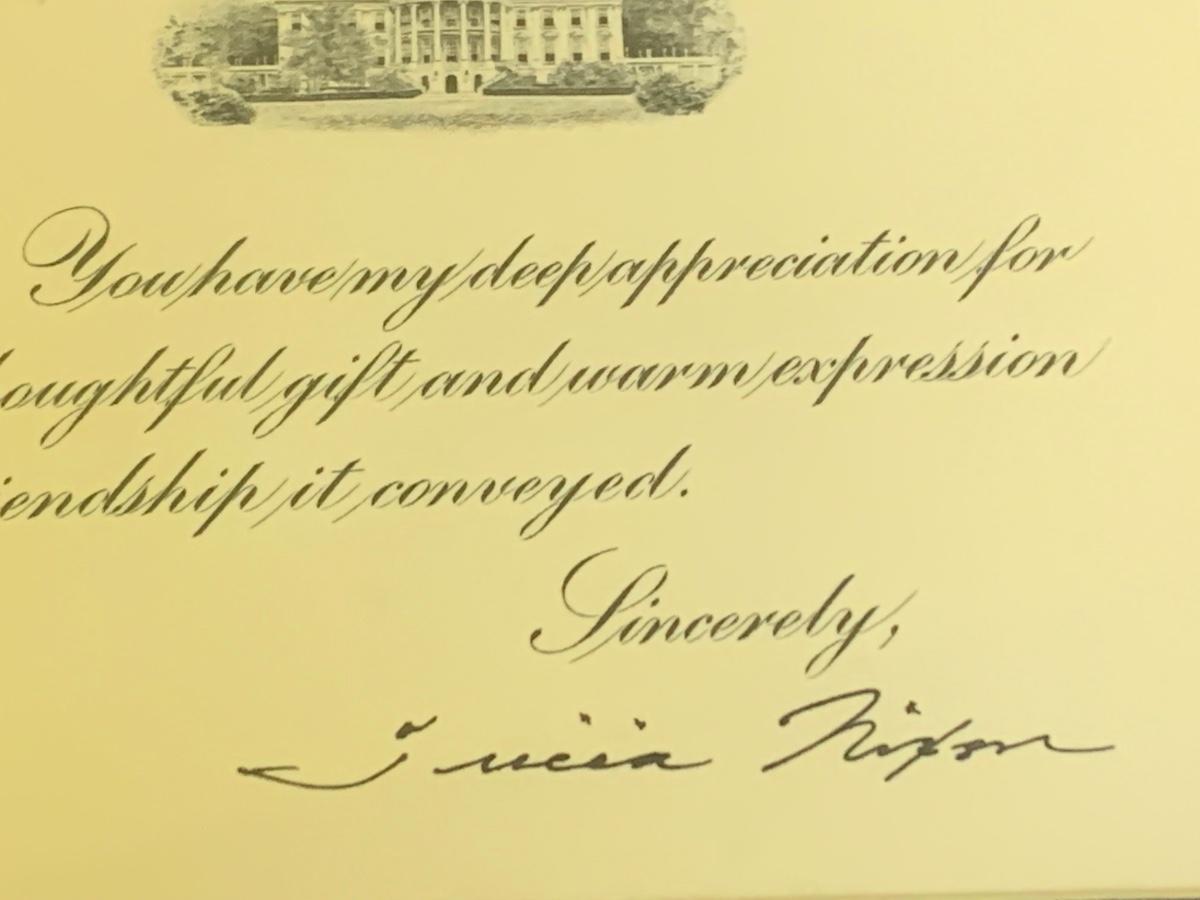 You have my deep appreciation for
oughtful gift and warm expression
iendship it conveyed.
Sincerely,
Tricia Nixon